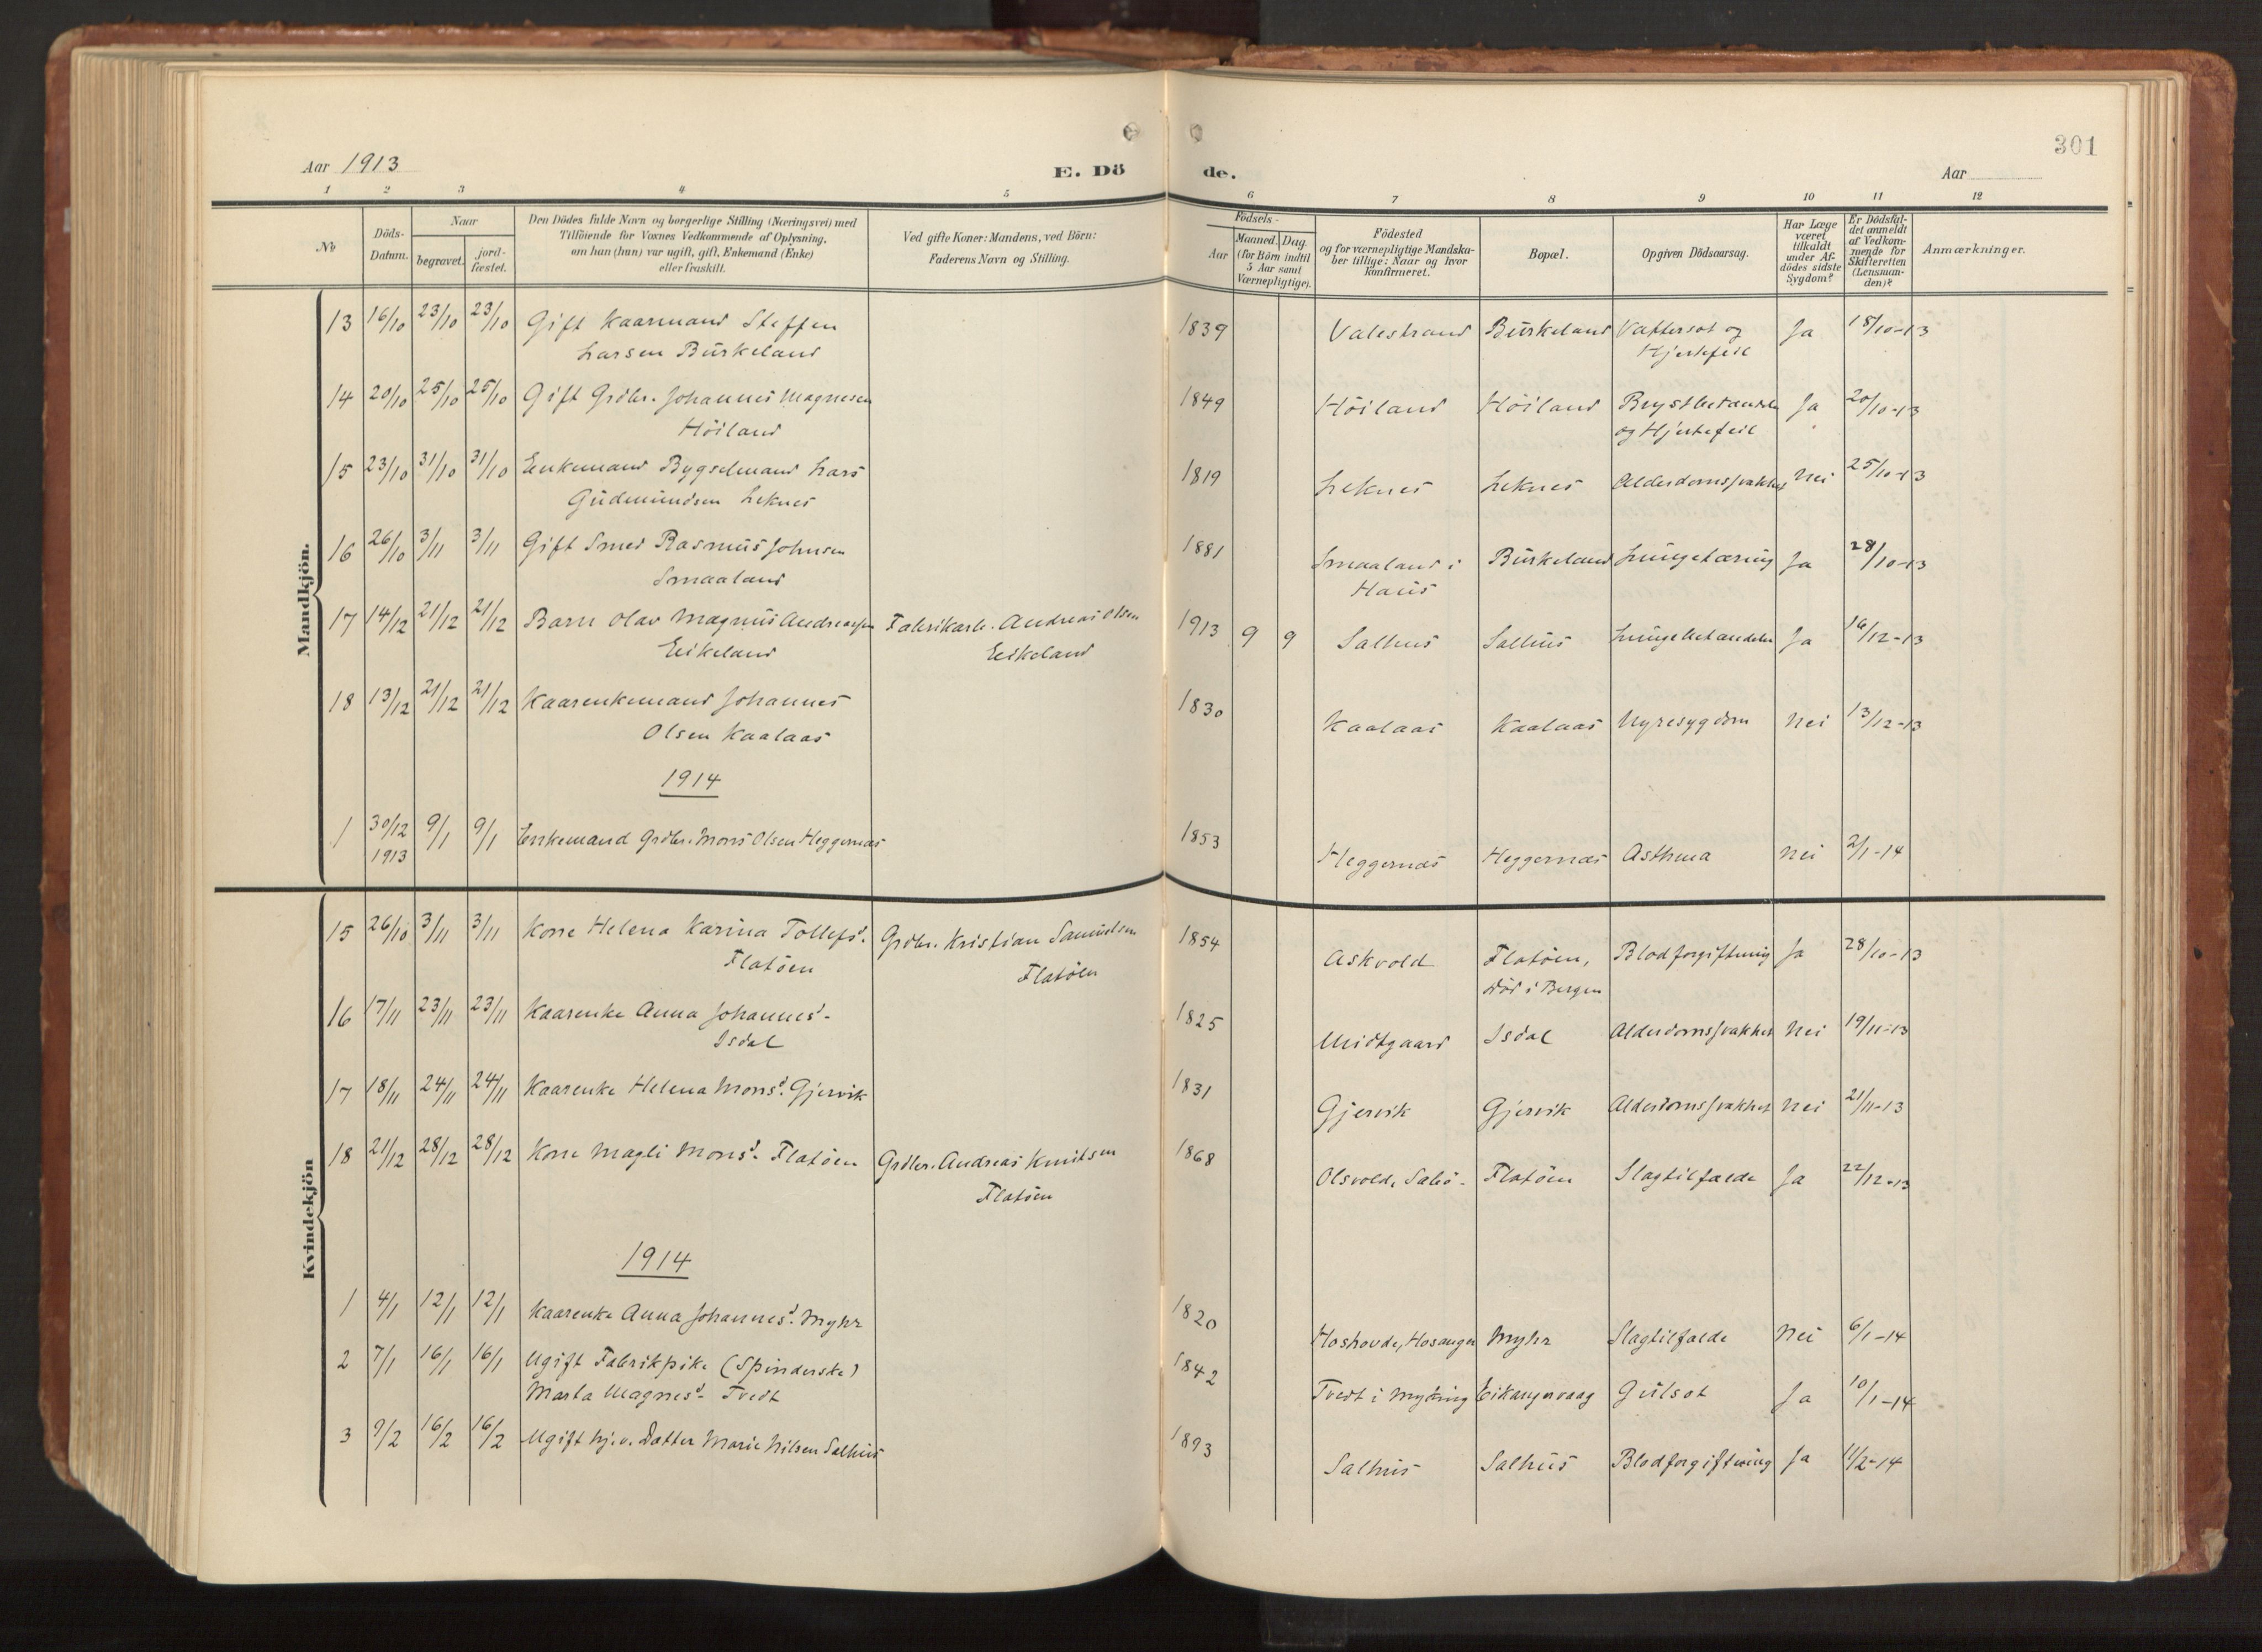 301
Aar 1913
E. Dö de.
Aar
1 2 3 4 5 6 7 8 9 10 11 12
No
Döds-Datum.
Naar
begravet.
jord-fæstet.
Den Dödes fulde Navn og borgerlige Stilling (Næringsvei) med
Tilföiende for Voxnes Vedkommende af Oplysning,
om han (hun) var ugift, gift, Enkemand (Enke)
eller fraskilt.
Ved gifte Koner: Mandens, ved Börn:
Faderens Navn og Stilling.
Födsels-
Aar
Maaned. Dag.
(for Börn indtil
5 Aar samt
Værnepligtige).
Födested
og for værnepligtige Mandska-
ber tillige: Naar og hvor
konfirmeret.
Bopæl.
Opgiven Dödsaarsag.
Har Læge
været
tilkaldt
under Af-
dödes sidste
Sygdom?
Er Dödsfal-
det anmeldt
af Vedkom-
mende for
Skifteretten
(Lensman-
den)?
Anmærkninger.
Mandkjön.
13 16/10 23/10 23/10 Gift Kaarmand Steffen 1839 Valestrand Burkeland Vattersot og Ja 18/10-13
Larsen Burkeland Hjertefeil
14 20/10 25/10 25/10 Gift Grdbr. Johannes Magnesen 1849 Höiland Höiland Brystbetændelse Ja 20/10-13
Höiland og Hjertefeil
15 23/10 31/10 31/10 Enkemand Bygselmand Lars 1819 Leknes Leknes Alderdomssvakhet Nei 25/10-13
Gudmundsen Leknes
16 26/10 3/11 3/11 Gift Smed Rasmus Johnsen 1881 Smaaland i Burkeland Lungetæring Ja 28/10-13
Smaaland Haus
17 14/12 21/12 21/12 Barn Olav Magnus Andreassen Fabrikarb. Andreas Olsen 1913 9 9 Salhus Salhus Lungebetændelse Ja 16/12-13
Eikeland Eikeland
18 13/12 21/12 21/12 Kaarenkemand Johannes 1830 Kaalaas Kaalaas Nyresygdom Nei 13/12-13
Olsen Kaalaas
1914
1 30/12 9/1 9/1 Enkemand Grdbr. Mons Olsen Heggernæs 1853 Heggernæs Heggernæs Asthma Nei 2/1-14
1913
Kvindekjön
15 26/10 3/11 3/11 Kone Helena Karina Tollefsd. Grdbr. Kristian Samuelsen 1854 Askvold Flatöen, Blodforgiftning Ja 28/10-13
Flatöen Flatöen död i Bergen
16 17/11 23/11 23/11 Kaarenke Anna Johannesd. 1825 Midtgaard Isdal Alderdomssvakhet Nei 19/11-13
Isdal
17 18/11 24/11 24/11 Kaarenke Helena Monsd. Gjervik 1831 Gjervik Gjervik Alderdomssvakhet Nei 21/11-13
18 21/12 28/12 28/12 Kone Magli Monsd. Flatöen Grdbr. Andreas Knutsen 1868 Olsvold, Sabö. Flatöen Slagtilfælde Ja 22/12-13
Flatöen
1914
1 4/1 12/1 12/1 Kaarenke Anna Johannesd. Myhr 1820 Hoshovde, Hosanger Myhr Slagtilfælde Nei 6/1-14
2 7/1 16/1 16/1 Ugift Fabrikpike (Spinderske) 1842 Tvedt i Myking Eikangervaag Gulsot Ja 10/1-14
Marta Magnesd. Tvedt
3 9/2 16/2 16/2 Ugift hj.v. Datter Marie Nilsen Salhus 1893 Salhus Salhus Blodforgiftning Ja 11/2-14